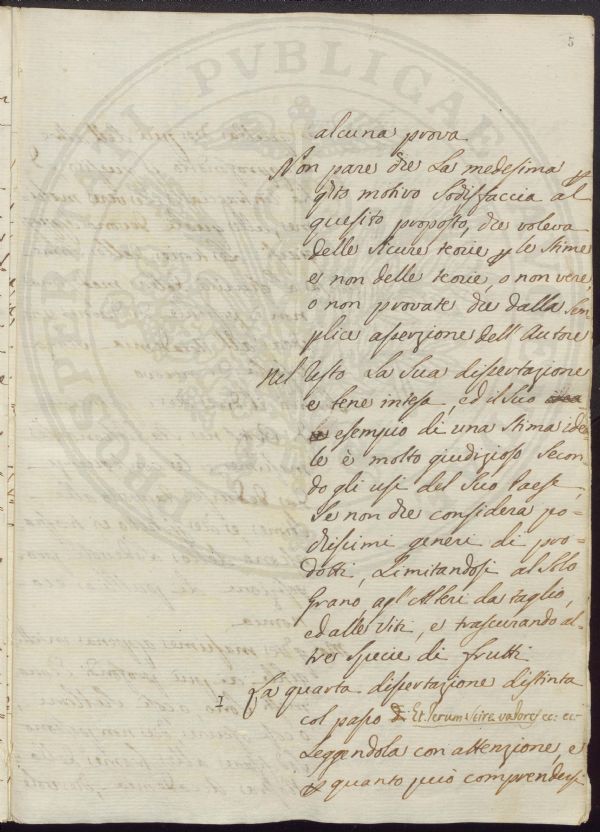 5
alcuna prova
Non pare che La medesima p
qto motivo Sodisfaccia al
quesito proposto, che voleva
delle sicure teorie p le stime
e non delle teorie, o non vere,
o non provate che dalla sem
plice asserzione dell'Autore
Nel resto La Sua dissertazione
e bene intesa, ed il Suo
esempio di una Stima idea
le è molto giudizioso Secon
do gli usi del Suo Paese,
Se non che considera po-
chissimi generi di pro-
dotti, Limitandosi al Solo
Grano, agl'Alberi da taglio,
ed alle Viti, e trascurando al-
tre Specie di frutti
La quarta dissertazione distinta
col passo Et rerum scire valores ec: ec:
Leggendola con attenzione, e
p quanto può comprendersi